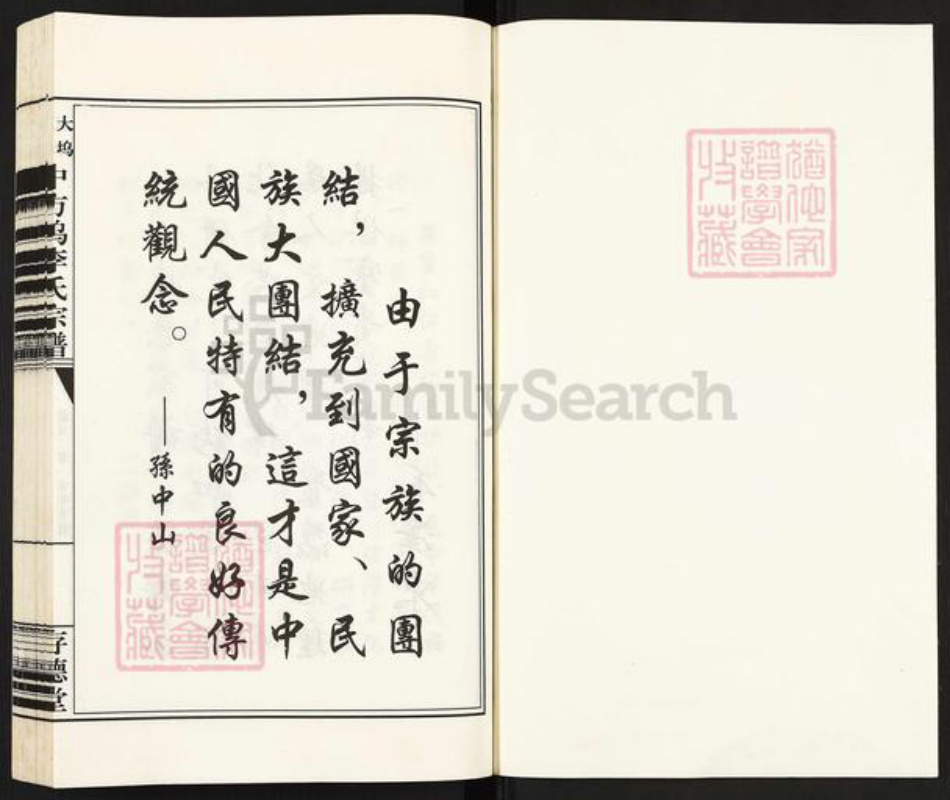 由于宗族的團
結，擴充到國家、民
族大團結，這才是中
國人民特有的良好傳
統觀念。
——孫中山
大塢中方塢李氏宗譜
存德堂
猶他家
譜學會
收藏
猶他家
譜學會
收藏
FamilySearch